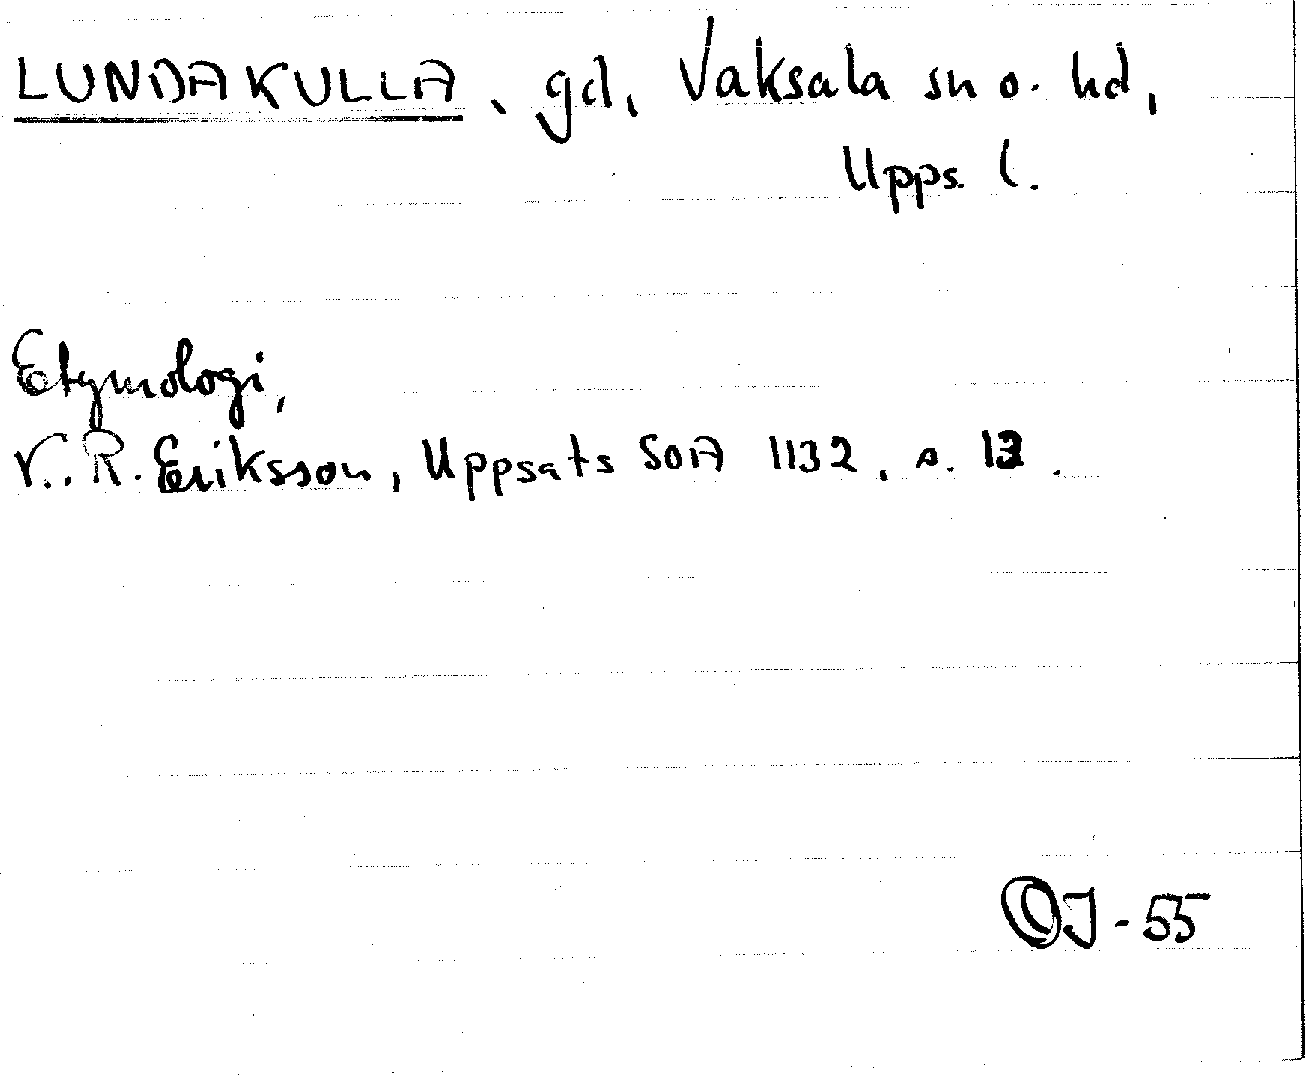 LUNDAKULLA, gd, Vaksala sn o. hd,
Upps. l.
Etymologi,
V. R. Eriksson, Uppsats SOA 1132, s. 13.
OJ-55